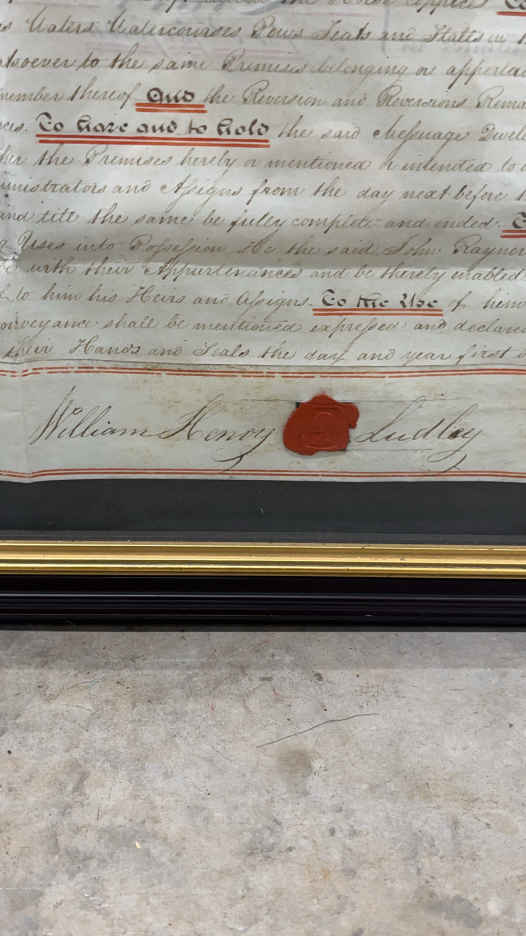 Waters Watercourses Pews Seats and Stalls in
soever to the same Premises belonging or apperta
member thereof And the Reversion and Reversions Rema
To have and to hold the said Messuage Dwel
the Premises hereby or mentioned or intended to
ministrators and Assigns from the day next before t
and till the same be fully complete and ended
Uses into Possession He the said John Rayno
with their Appurtenances and be thereby enabled
to him his Heirs and Assigns To the Use of
onveyance shall be mentioned expressed and declare
their Hands and Seals the day and year first
William Henry Ludley